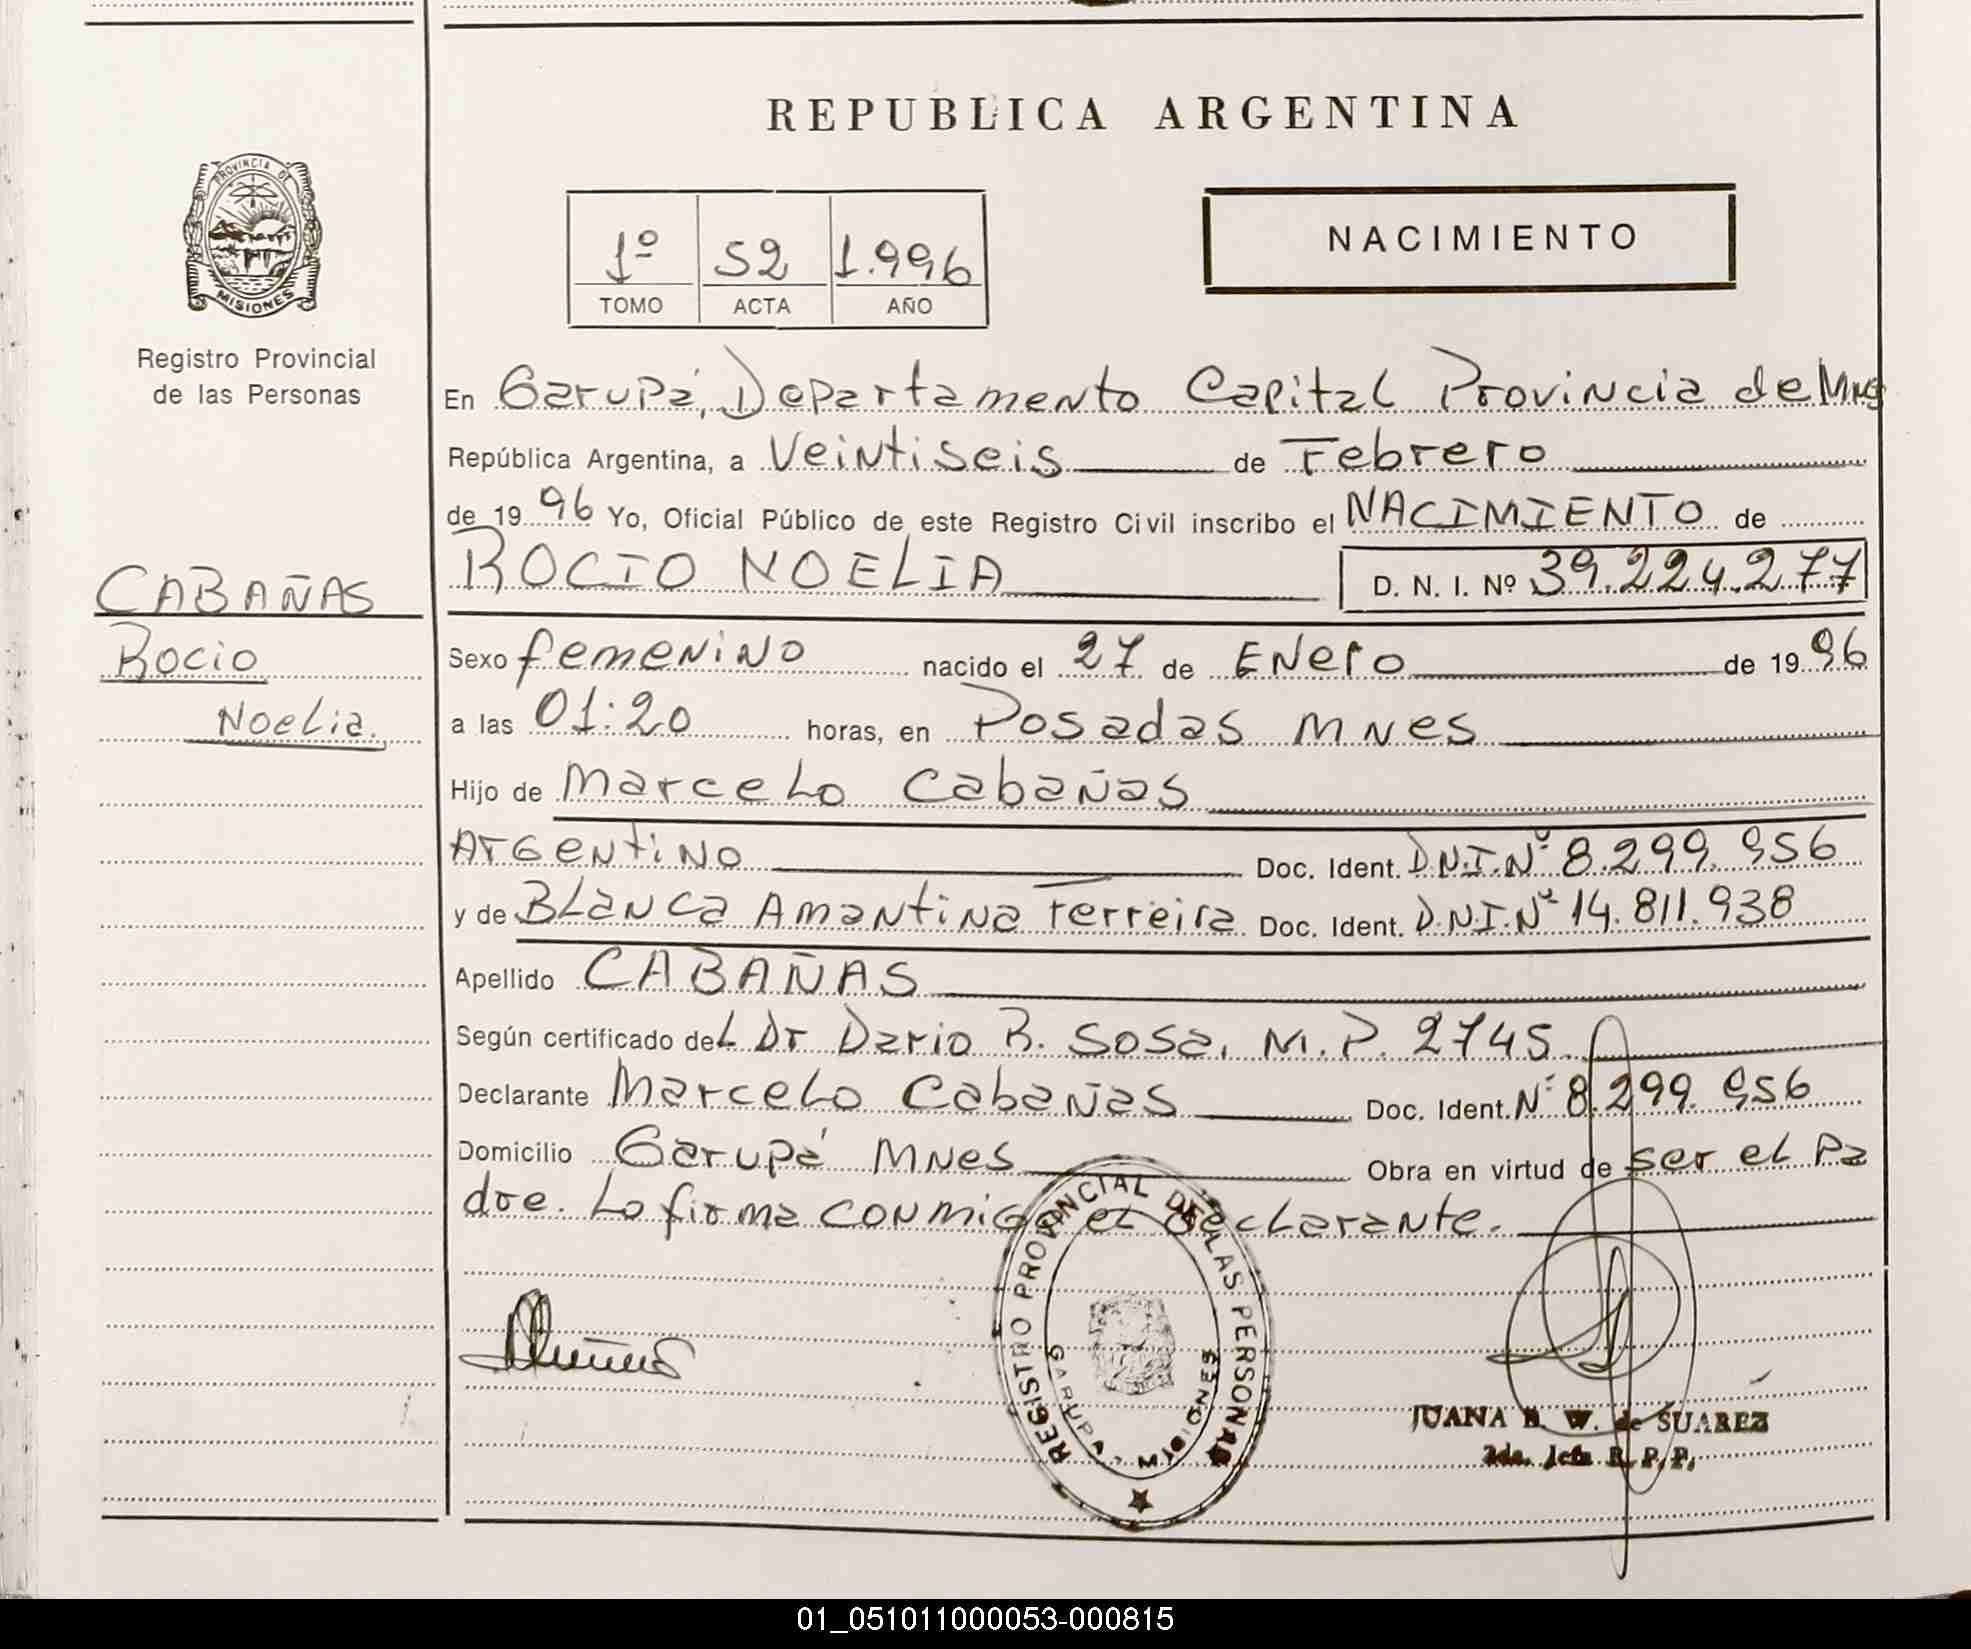 REPUBLICA ARGENTINA
PROVINCIA DE
MISIONES
Registro Provincial
de las Personas
1º 52 1.996
TOMO ACTA AÑO
NACIMIENTO
En Garupá, Departamento Capital Provincia de Mnes
República Argentina, a Veintiseis de Febrero
de 1996 Yo, Oficial Público de este Registro Civil inscribo el NACIMIENTO de
ROCIO NOELIA D. N. I. Nº 39.224.277
CABAÑAS
Rocio
Noelia.
Sexo femenino nacido el 27 de Enero de 1996
a las 01:20 horas, en Posadas Mnes
Hijo de Marcelo Cabañas
Argentino Doc. Ident. D.N.I.Nº 8.299.956
y de Blanca Amantina Ferreira Doc. Ident. D.N.I.Nº 14.811.938
Apellido CABAÑAS
Según certificado del Dr Dario R. Sosa, M.P. 2745
Declarante Marcelo Cabañas Doc. Ident. Nº 8.299.956
Domicilio Garupá Mnes Obra en virtud de ser el Pa
dre. Lo firma conmigo el declarante.
REGISTRO PROVINCIAL DE LAS PERSONAS
GARUPA, MISIONES
JUANA B. W. de SUAREZ
2da. Jefa R.P.P.
01_051011000053-000815